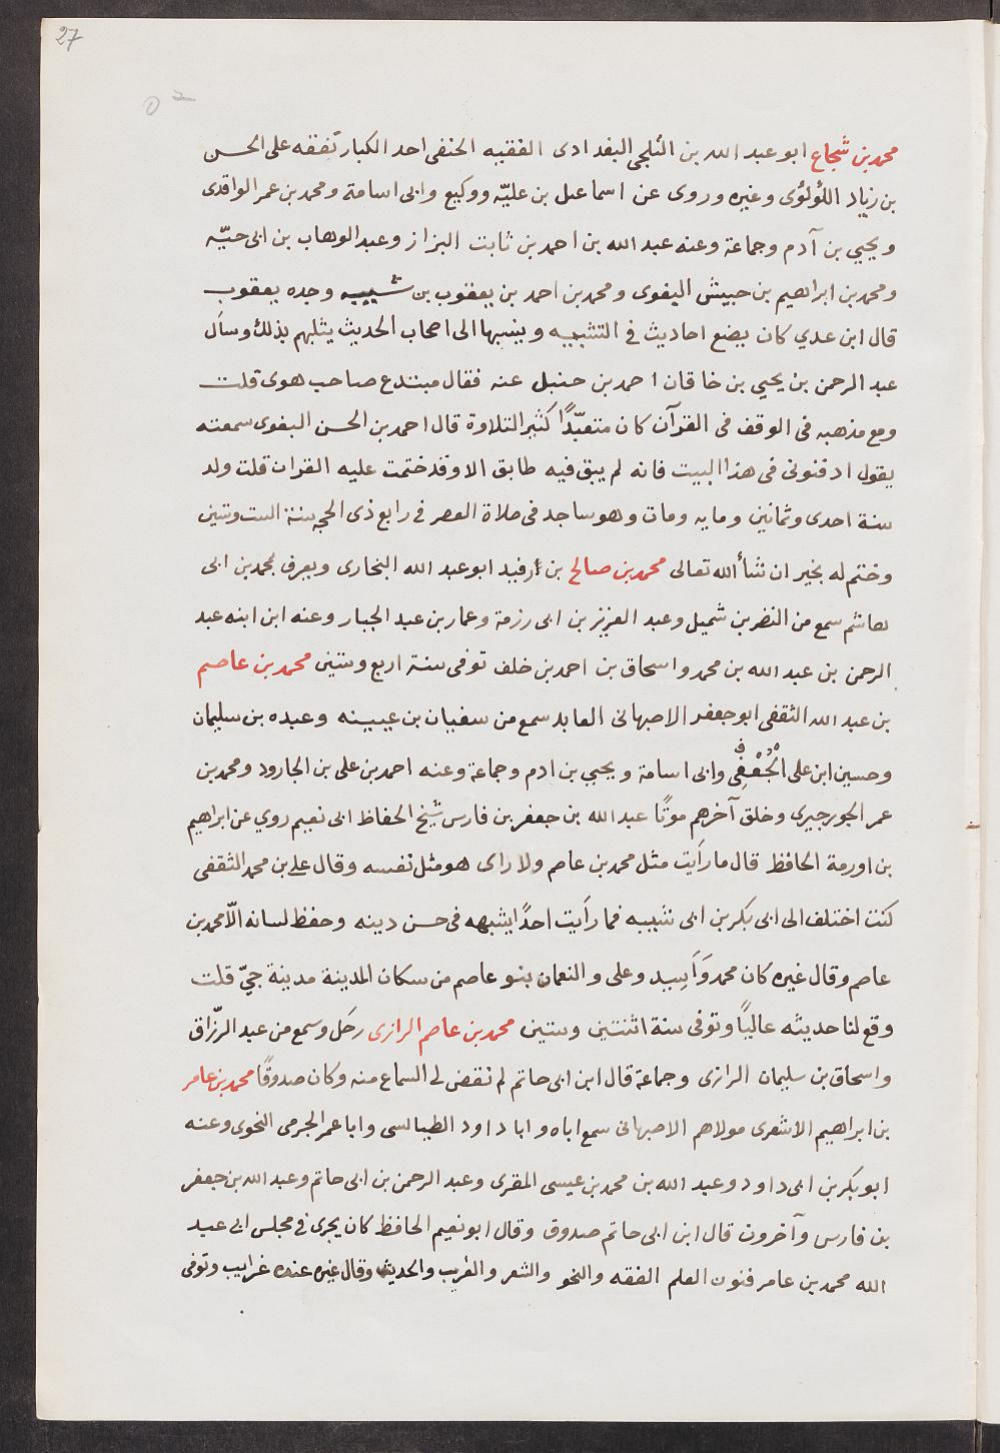 27
محمد بن شجاع ابو عبد الله بن الثلجى البغدادى الفقيه الحنفى احد الكبار تفقه على الحسن
بن زياد اللؤلؤى وغيره وروى عن اسماعيل بن عليّه ووكيع وابى اسامة ومحمد بن عمر الواقدى
ويحيي بن آدم وجماعة وعنه عبد الله بن احمد بن ثابت البزاز وعبد الوهاب بن ابى حيّه
ومحمد بن ابراهيم بن حبيش البغوى ومحمد بن احمد بن يعقوب بن شيبه وجده يعقوب
قال ابن عدي كان يضع احاديث في التشبيه وينسبها الى اصحاب الحديث يثلبهم بذلك وسأل
عبد الرحمن بن يحيي بن خاقان احمد بن حنبل عنه فقال مبتدع صاحب هوى قلت
ومع مذهبه فى الوقف فى القرآن كان متعبّدًا كثير التلاوة قال احمد بن الحسن البغوى سمعته
يقول ادفنونى فى هذا البيت فانه لم يبق فيه طابق الا وقد ختمت عليه القران قلت ولد
سنة احدى وثمانين ومايه ومات وهو ساجد فى صلاة العصر فى رابع ذى الحجه سنة الست وستين
وختم له بخير ان شأ الله تعالى محمد بن صالح بن أرفيد ابو عبد الله البخارى ويعرف بمحمد بن ابى
هاشم سمع من النضر بن شميل وعبد العزيز بن ابى رزمة وعمار بن عبد الجبار وعنه ابن ابنه عبد
الرحمن بن عبد الله بن محمد واسحاق بن احمد بن خلف توفى سنة اربع وستين محمد بن عاصم
بن عبد الله الثقفى ابو جعفر الاصبهانى العابد سمع من سفيان بن عيينه وعبده بن سليمان
وحسين ابن على الجُعْفِى وابى اسامة ويحيي بن ادم وجماعة وعنه احمد بن على بن الجارود ومحمد بن
عمر الجورجيرى وخلق آخرهم موتًا عبد الله بن جعفر بن فارس شيخ الحفاظ ابى نعيم روي عن ابراهيم
بن اورمة الحافظ قال ما رأيت مثل محمد بن عاصم ولا راى هو مثل نفسه وقال على بن محمد الثقفى
كنت اختلف الى ابى بكر بن ابى شيبه فما رأيت احدًا يشبهه فى حسن دينه وحفظ لسانه الّا محمد بن
عاصم وقال غيره كان محمد وَأَسِيد وعلى والنعمان بنو عاصم من سكان المدينة مدينة جيّ قلت
وقع لنا حديثه عاليًا وتوفى سنة اثنتين وستين محمد بن عاصم الرازى رحَل وسمع من عبد الرزّاق
واسحاق بن سليمان الرازى وجماعة قال ابن ابى حاتم لم نقض لى السماع منه وكان صدوقًا محمد بن عامر
بن ابراهيم الاشعرى مولاهم الاصبهانى سمع اباه وابا داود الطيالسى وابا عمر الجرمى النحوى وعنه
ابو بكر بن ابى داود وعبد الله بن محمد بن عيسى المقرى وعبد الرحمن بن ابى حاتم وعبد الله بن جعفر
بن فارس وآخرون قال ابن ابى حاتم صدوق وقال ابو نعيم الحافظ كان يجرى في مجلس ابى عبد
الله محمد بن عامر فنون العلم الفقه والنحو والشعر والغريب والحديث وقال غيره عنده غرايب وتوفى